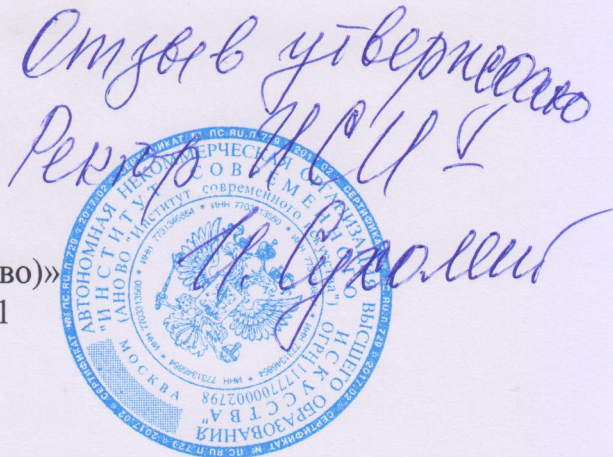 Отзыв утверждаю
Ректор ИСИ
И. Сухолет
во)»
1
АВТОНОМНАЯ НЕКОММЕРЧЕСКАЯ ОРГАНИЗАЦИЯ ВЫСШЕГО ОБРАЗОВАНИЯ
"ИНСТИТУТ СОВРЕМЕННОГО ИСКУССТВА"
(АНО ВО "Институт современного искусства")
ОГРН 1177700002798
МОСКВА